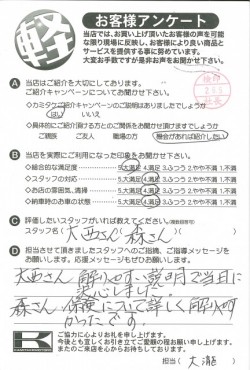 軽
お客様アンケート
当店では、お買い上げ頂いたお客様の声を可能
な限り現場に反映し、お客様により良い商品と
サービスを提供する事に努めています。
大変お手数ですが是非お声をお聞かせ下さい。
A 当店はご紹介を大切にしております。
ご紹介キャンペーンについてお聞かせ下さい。
◇カミタケご紹介キャンペーンのご説明はありましたでしょうか
はい いいえ
◇具体的にご紹介頂ける方とのご関係をお聞かせ頂けますでしょうか
ご親族 ご友人 職場の方 機会があれば紹介したい
B 当店を実際にご利用になった印象をお聞かせ下さい。
◇総合的な満足度 5.大満足 4.満足 3.ふつう 2.やや不満 1.不満
◇スタッフの対応 5.大満足 4.満足 3.ふつう 2.やや不満 1.不満
◇お店の雰囲気、清掃 5.大満足 4.満足 3.ふつう 2.やや不満 1.不満
◇納車時のお車の状態 5.大満足 4.満足 3.ふつう 2.やや不満 1.不満
C 評価したいスタッフがいれば教えてください。(複数回答可)
スタッフ名( 大西さん 森さん )
D 担当させて頂きましたスタッフへのご指摘、ご指導メッセージを
お願いします。応援メッセージもぜひお願いします。
大西さん 解りやすい説明で当日に
安心しました
森さん 保険について詳しく解りやす
かったです
K
ご協力に心よりお礼を申し上げます。
今後とも宜しくお引き立てご愛顧の程お願い申し上げます。
またのご来店を心からお待ちしております。
担当( 大瀧 )